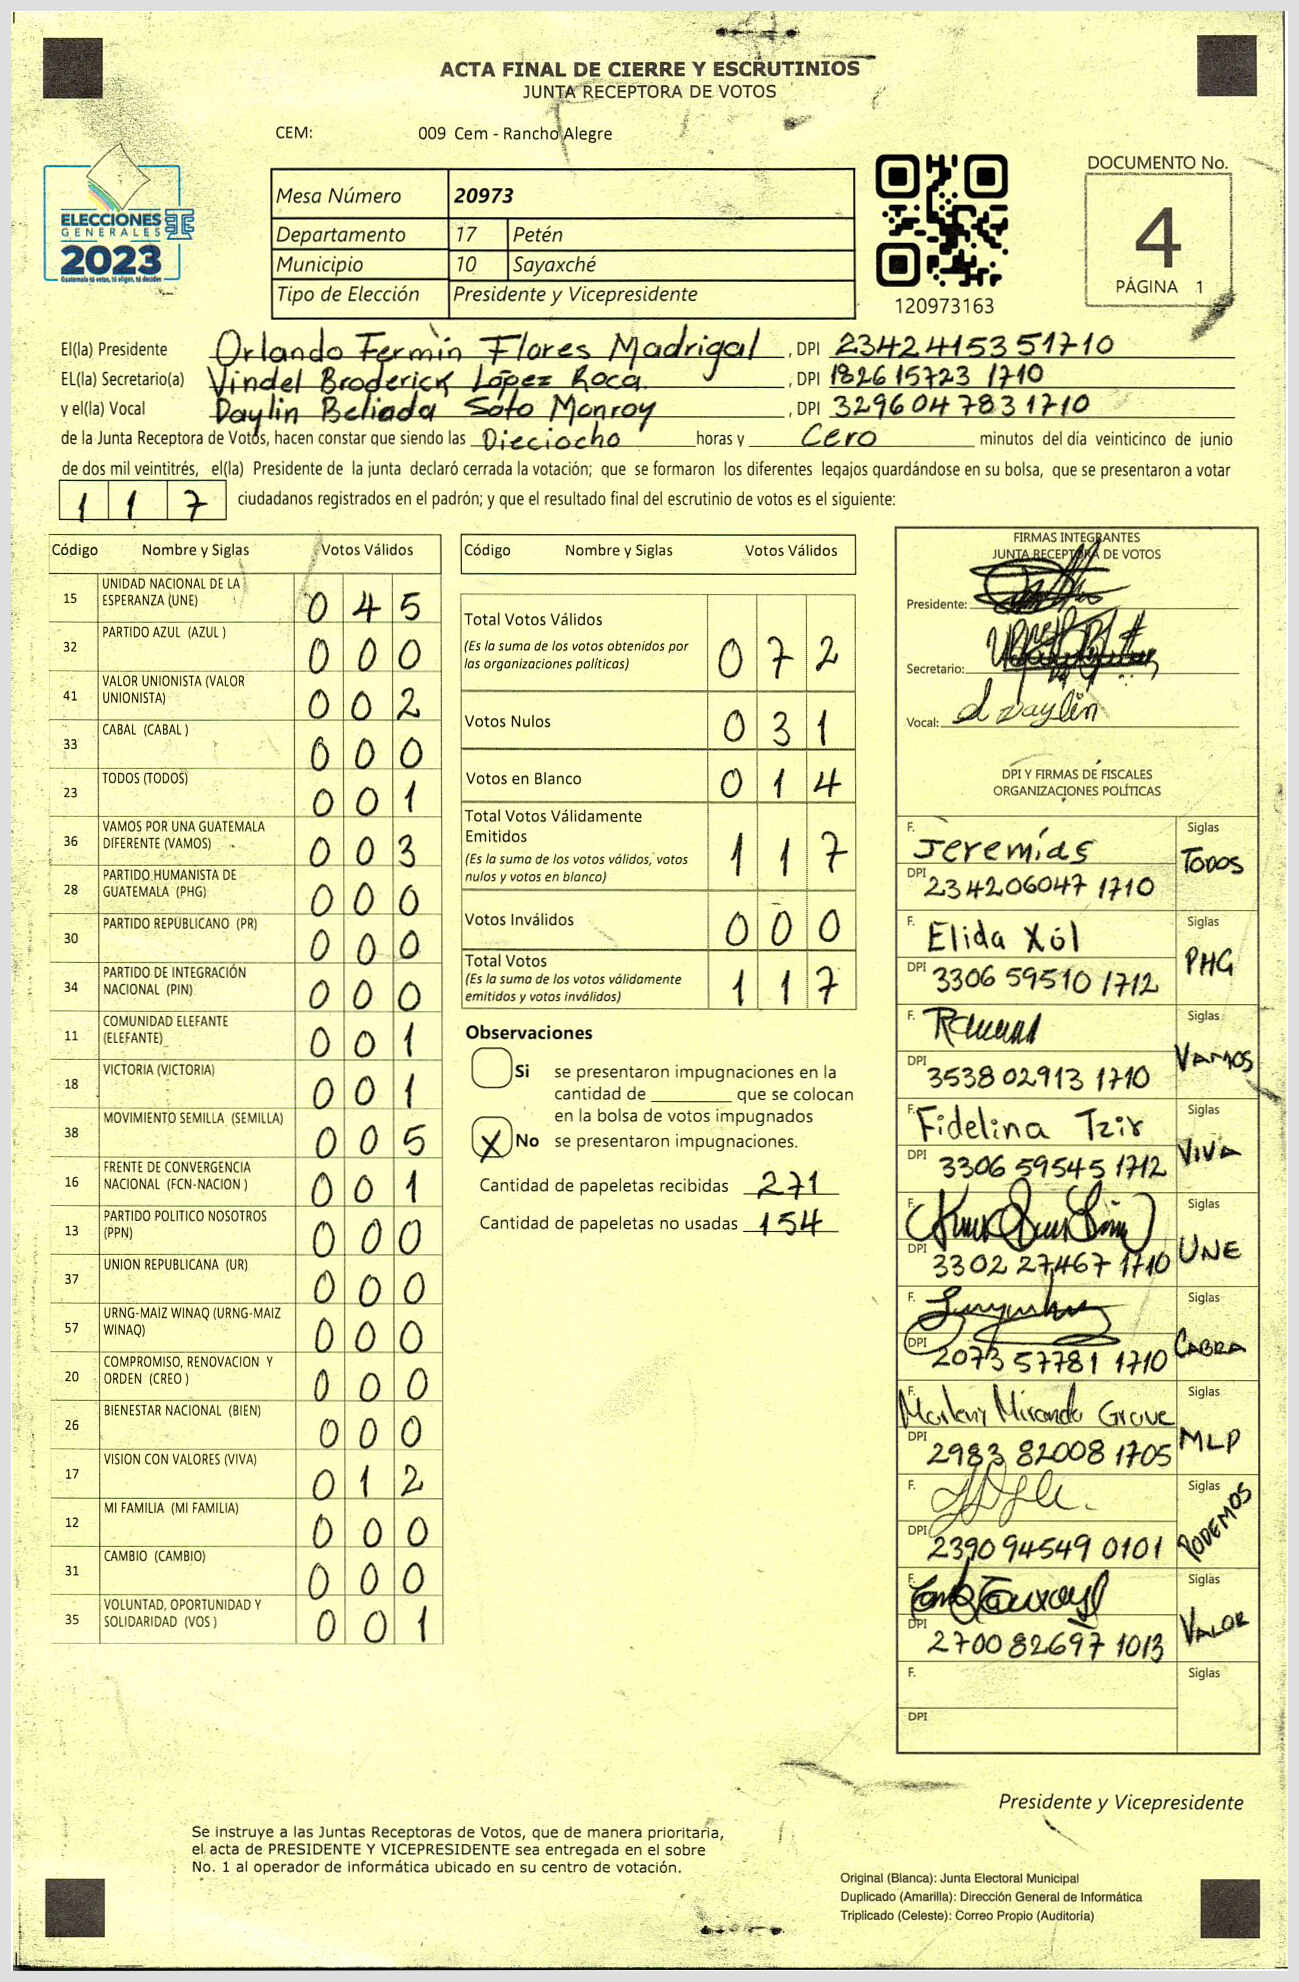 ACTA FINAL DE CIERRE Y ESCRUTINIOS
JUNTA RECEPTORA DE VOTOS
CEM: 009 Cem - Rancho Alegre
ELECCIONES
GENERALES
2023
Guatemala tú votas, tú eliges, tú decides
Mesa Número 20973
Departamento 17 Petén
Municipio 10 Sayaxché
Tipo de Elección Presidente y Vicepresidente
120973163
DOCUMENTO No.
4
PÁGINA 1
El(la) Presidente Orlando Fermín Flores Madrigal, DPI 2342415351710
EL(la) Secretario(a) Vindel Broderick López Roca, DPI 1826157231710
y el(la) Vocal Daylin Belinda Soto Monroy, DPI 3296047831710
de la Junta Receptora de Votos, hacen constar que siendo las Dieciocho horas y Cero minutos del día veinticinco de junio
de dos mil veintitrés, el(la) Presidente de la junta declaró cerrada la votación; que se formaron los diferentes legajos guardándose en su bolsa, que se presentaron a votar
1 1 7 ciudadanos registrados en el padrón; y que el resultado final del escrutinio de votos es el siguiente:
Código Nombre y Siglas Votos Válidos
15 UNIDAD NACIONAL DE LA ESPERANZA (UNE) 0 4 5
32 PARTIDO AZUL (AZUL ) 0 0 0
41 VALOR UNIONISTA (VALOR UNIONISTA) 0 0 2
33 CABAL (CABAL ) 0 0 0
23 TODOS (TODOS) 0 0 1
36 VAMOS POR UNA GUATEMALA DIFERENTE (VAMOS) 0 0 3
28 PARTIDO HUMANISTA DE GUATEMALA (PHG) 0 0 0
30 PARTIDO REPUBLICANO (PR) 0 0 0
34 PARTIDO DE INTEGRACIÓN NACIONAL (PIN) 0 0 0
11 COMUNIDAD ELEFANTE (ELEFANTE) 0 0 1
18 VICTORIA (VICTORIA) 0 0 1
38 MOVIMIENTO SEMILLA (SEMILLA) 0 0 5
16 FRENTE DE CONVERGENCIA NACIONAL (FCN-NACION ) 0 0 1
13 PARTIDO POLITICO NOSOTROS (PPN) 0 0 0
37 UNION REPUBLICANA (UR) 0 0 0
57 URNG-MAIZ WINAQ (URNG-MAIZ WINAQ) 0 0 0
20 COMPROMISO, RENOVACION Y ORDEN (CREO ) 0 0 0
26 BIENESTAR NACIONAL (BIEN) 0 0 0
17 VISION CON VALORES (VIVA) 0 1 2
12 MI FAMILIA (MI FAMILIA) 0 0 0
31 CAMBIO (CAMBIO) 0 0 0
35 VOLUNTAD, OPORTUNIDAD Y SOLIDARIDAD (VOS ) 0 0 1
Código Nombre y Siglas Votos Válidos
Total Votos Válidos 0 7 2
(Es la suma de los votos obtenidos por
las organizaciones políticas)
Votos Nulos 0 3 1
Votos en Blanco 0 1 4
Total Votos Válidamente
Emitidos 1 1 7
(Es la suma de los votos válidos, votos
nulos y votos en blanco)
Votos Inválidos 0 0 0
Total Votos 1 1 7
(Es la suma de los votos válidamente
emitidos y votos inválidos)
Observaciones
Si se presentaron impugnaciones en la
cantidad de ________ que se colocan
en la bolsa de votos impugnados
X No se presentaron impugnaciones.
Cantidad de papeletas recibidas 271
Cantidad de papeletas no usadas 154
FIRMAS INTEGRANTES
JUNTA RECEPTORA DE VOTOS
Presidente:
Secretario:
Vocal: daylin
DPI Y FIRMAS DE FISCALES
ORGANIZACIONES POLÍTICAS
F. Jeremías Siglas TODOS
DPI 234206047 1710
F. Elida Xól Siglas PHG
DPI 3306 59510 1712
F. Siglas VAMOS
DPI 3538 02913 1710
F. Fidelina Tzir Siglas VIVA
DPI 3306 59545 1712
F. Siglas UNE
DPI 3302 27467 1710
F. Siglas CABRA
DPI 2073 57781 1710
F. Marleny Miranda Grave Siglas MLP
DPI 2983 82008 1705
F. Siglas PODEMOS
DPI 2390 94549 0101
F. Siglas VALOR
DPI 2700 82697 1013
F. Siglas
DPI
Presidente y Vicepresidente
Se instruye a las Juntas Receptoras de Votos, que de manera prioritaria,
el acta de PRESIDENTE Y VICEPRESIDENTE sea entregada en el sobre
No. 1 al operador de informática ubicado en su centro de votación.
Original (Blanca): Junta Electoral Municipal
Duplicado (Amarilla): Dirección General de Informática
Triplicado (Celeste): Correo Propio (Auditoría)